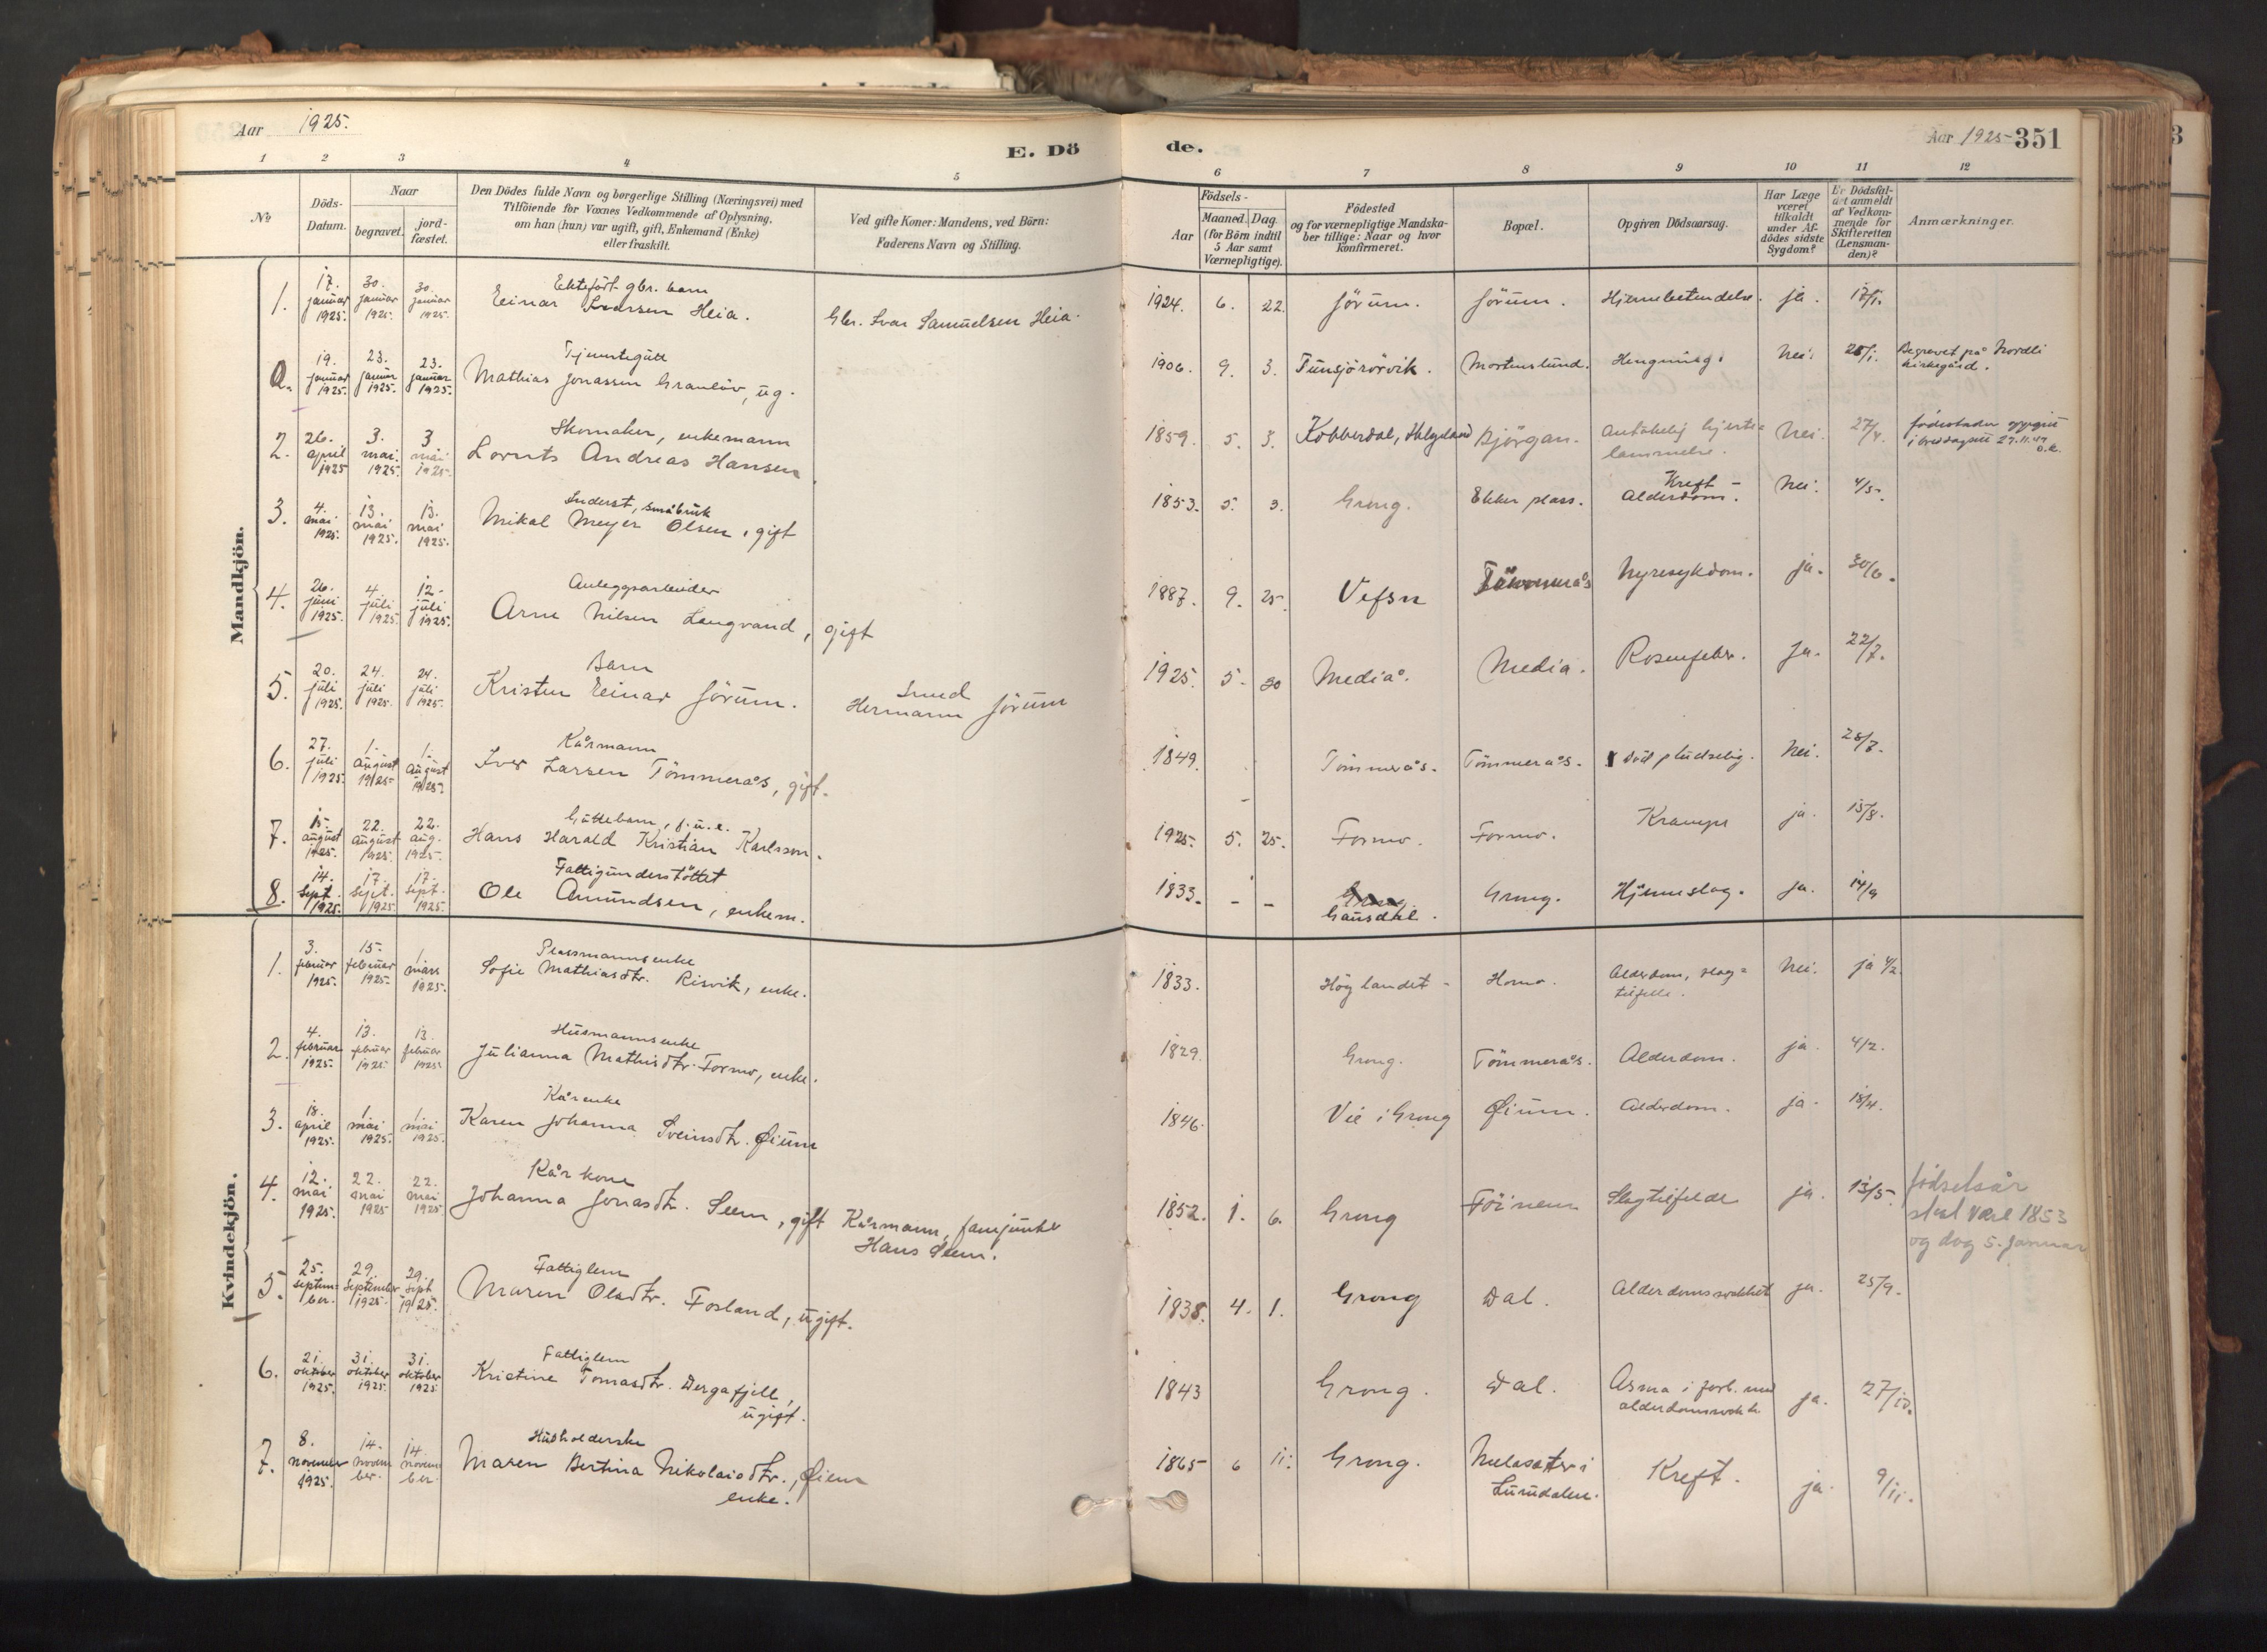 Aar 1925.
E. Dö
de.
Aar 1925 351
1 2 3 4 5 6 7 8 9 10 11 12
No
Döds-
Datum.
Naar
begravet.
jord-
fæstet.
Den Dödes fulde Navn og borgerlige Stilling (Næringsvei) med
Tilföiende for Voxnes Vedkommende af Oplysning,
om han (hun) var ugift, gift, Enkemand (Enke)
eller fraskilt.
Ved gifte Koner: Mandens, ved Börn:
Faderens Navn og Stilling.
Födsels-
Aar
Maaned. Dag
(for Börn indtil
5 Aar samt
Værnepligtige).
Födested
og for værnepligtige Mandska-
ber tillige: Naar og hvor
konfirmeret.
Bopæl.
Opgiven Dödsaarsag.
Har Læge
været
tilkaldt
under Af-
dödes sidste
Sygdom?
Er Dödsfal-
det anmeldt
af Vedkom-
mende for
Skifteretten
(Lensman-
den)?
Anmærkninger.
Mandkjön.
1. 17. januar 1925. 30. januar 1925. 30. januar 1925.
Ektefödt gbr. barn
Einar Ivarsen Heia.
Gbr. Ivar Samuelsen Heia.
1924. 6. 22. Jörum. Jörum. Hjernebetendelse. ja. 17/1.
a. 19. januar 1925. 23. januar 1925. 23. januar 1925.
Tjenestegutt
Mathias Jonassen Granlöv, ug.
1906. 9. 3. Tunsjörörvik. Mortenslund. Hengning. Nei. 28/1. Begravet på Nordli
kirkegård.
2. 26. april 1925 3. mai 1925. 3 mai 1925.
Skomaker, enkemann
Lornts Andreas Hansen
1859. 5. 3. Kobberdal, Helgeland Bjørgan. Antakelig hjerte=
lammelse. Nei. 27/4. fødestaden oppgitt
3. 4. mai 1925. 13. mai 1925. 13. mai 1925.
Inderst, småbruk
Mikal Meyer Olsen, gift
1853. 5. 3. Grong. Ekker plass. Kreft -
Alderdom. Nei. 4/5.
4. 26. juni 1925. 4. juli 1925. 12. juli 1925.
Anleggsarbeider
Arne Nilsen Langvand, gift
1887. 9. 25. Vefsn Tömmerås Nyresykdom. ja. 30/6.
5. 20. juli 1925. 24. juli 1925. 24. juli 1925.
Barn
Kristen Einar Jörum.
Smed
Hermann Jörum
1925. 5. 30 Mediå. Media. Rosenfeber. Ja. 22/7.
6. 27. juli 1925. 1. august 1925. 1. august 1925.
Kårmann
Iver Larsen Tömmerås, gift.
1849. Tömmerås. Tömmerås. död pludselig. Nei. 28/7.
7. 15. august 1925. 22. august 1925. 22. aug. 1925.
Guttebarn, f.u.e.
Hans Harald Kristian Karlsson.
1925. 5. 25. Formo. Formo. Krampe ja. 15/8.
8. 14. sept. 1925. 17. sept. 1925. 17. sept. 1925.
Fattigunderstöttet
Ole Amundsen, enkem.
1833. - - Grong
Gausdal. Grong. Hjerneslag. ja. 14/9
Kvindekjön.
1. 3. februar 1925. 15. februar 1925. 1 mars 1925.
Plassmannsenke
Sofie Mathiasdtr. Risvik, enke.
1833. Höglandet - Homo. Alderdom, slag=
tilfelle. Nei. ja 4/2.
2. 4. februar 1925. 13. februar 1925. 13. februar 1925
Husmannsenke
Julianna Mathisdtr. Formo, enke.
1829. Grong. Tömmerås. Alderdom. ja. 4/2.
3. 18. april 1925. 1. mai 1925. 1. mai 1925.
Kårenke
Karen Johanna Sveinsdtr. Øium
1846. Vie i Grong Øium. Alderdom. ja. 18/4.
4. 12. mai 1925. 22. mai 1925 22. mai 1925
Kårkone
Johanna Jonasdtr. Seem, gift
Kårmann, fanejunker
Hans Seem.
1852. 1. 6. Grong Föinem Slagtilfelde ja. 13/5 fødselsår
skal være 1853
og dag 5. Januar
5. 25. septem-
ber. 29. September 1925. 29. Sept 1925.
Fattiglem
Maren Olsdtr. Fosland, ugift.
1838. 4. 1. Grong Dal. Alderdomssvakhet ja. 25/9.
6. 21. oktober 1925. 31. oktober 1925. 31. oktober 1925
Fattiglem
Kristine Tomasdtr. Dergafjell,
ugift.
1843 Grong. Dal. Asma i forb. med
alderdomssvakh. ja. 27/10.
7. 8. november 1925. 14. novem
ber. 14. novem
ber.
Husholderske
Maren Bertina Nikolaisdtr., Øiem
enke.
1865 6 11. Grong. i
Lurudalen. Kreft. ja. 9/11.